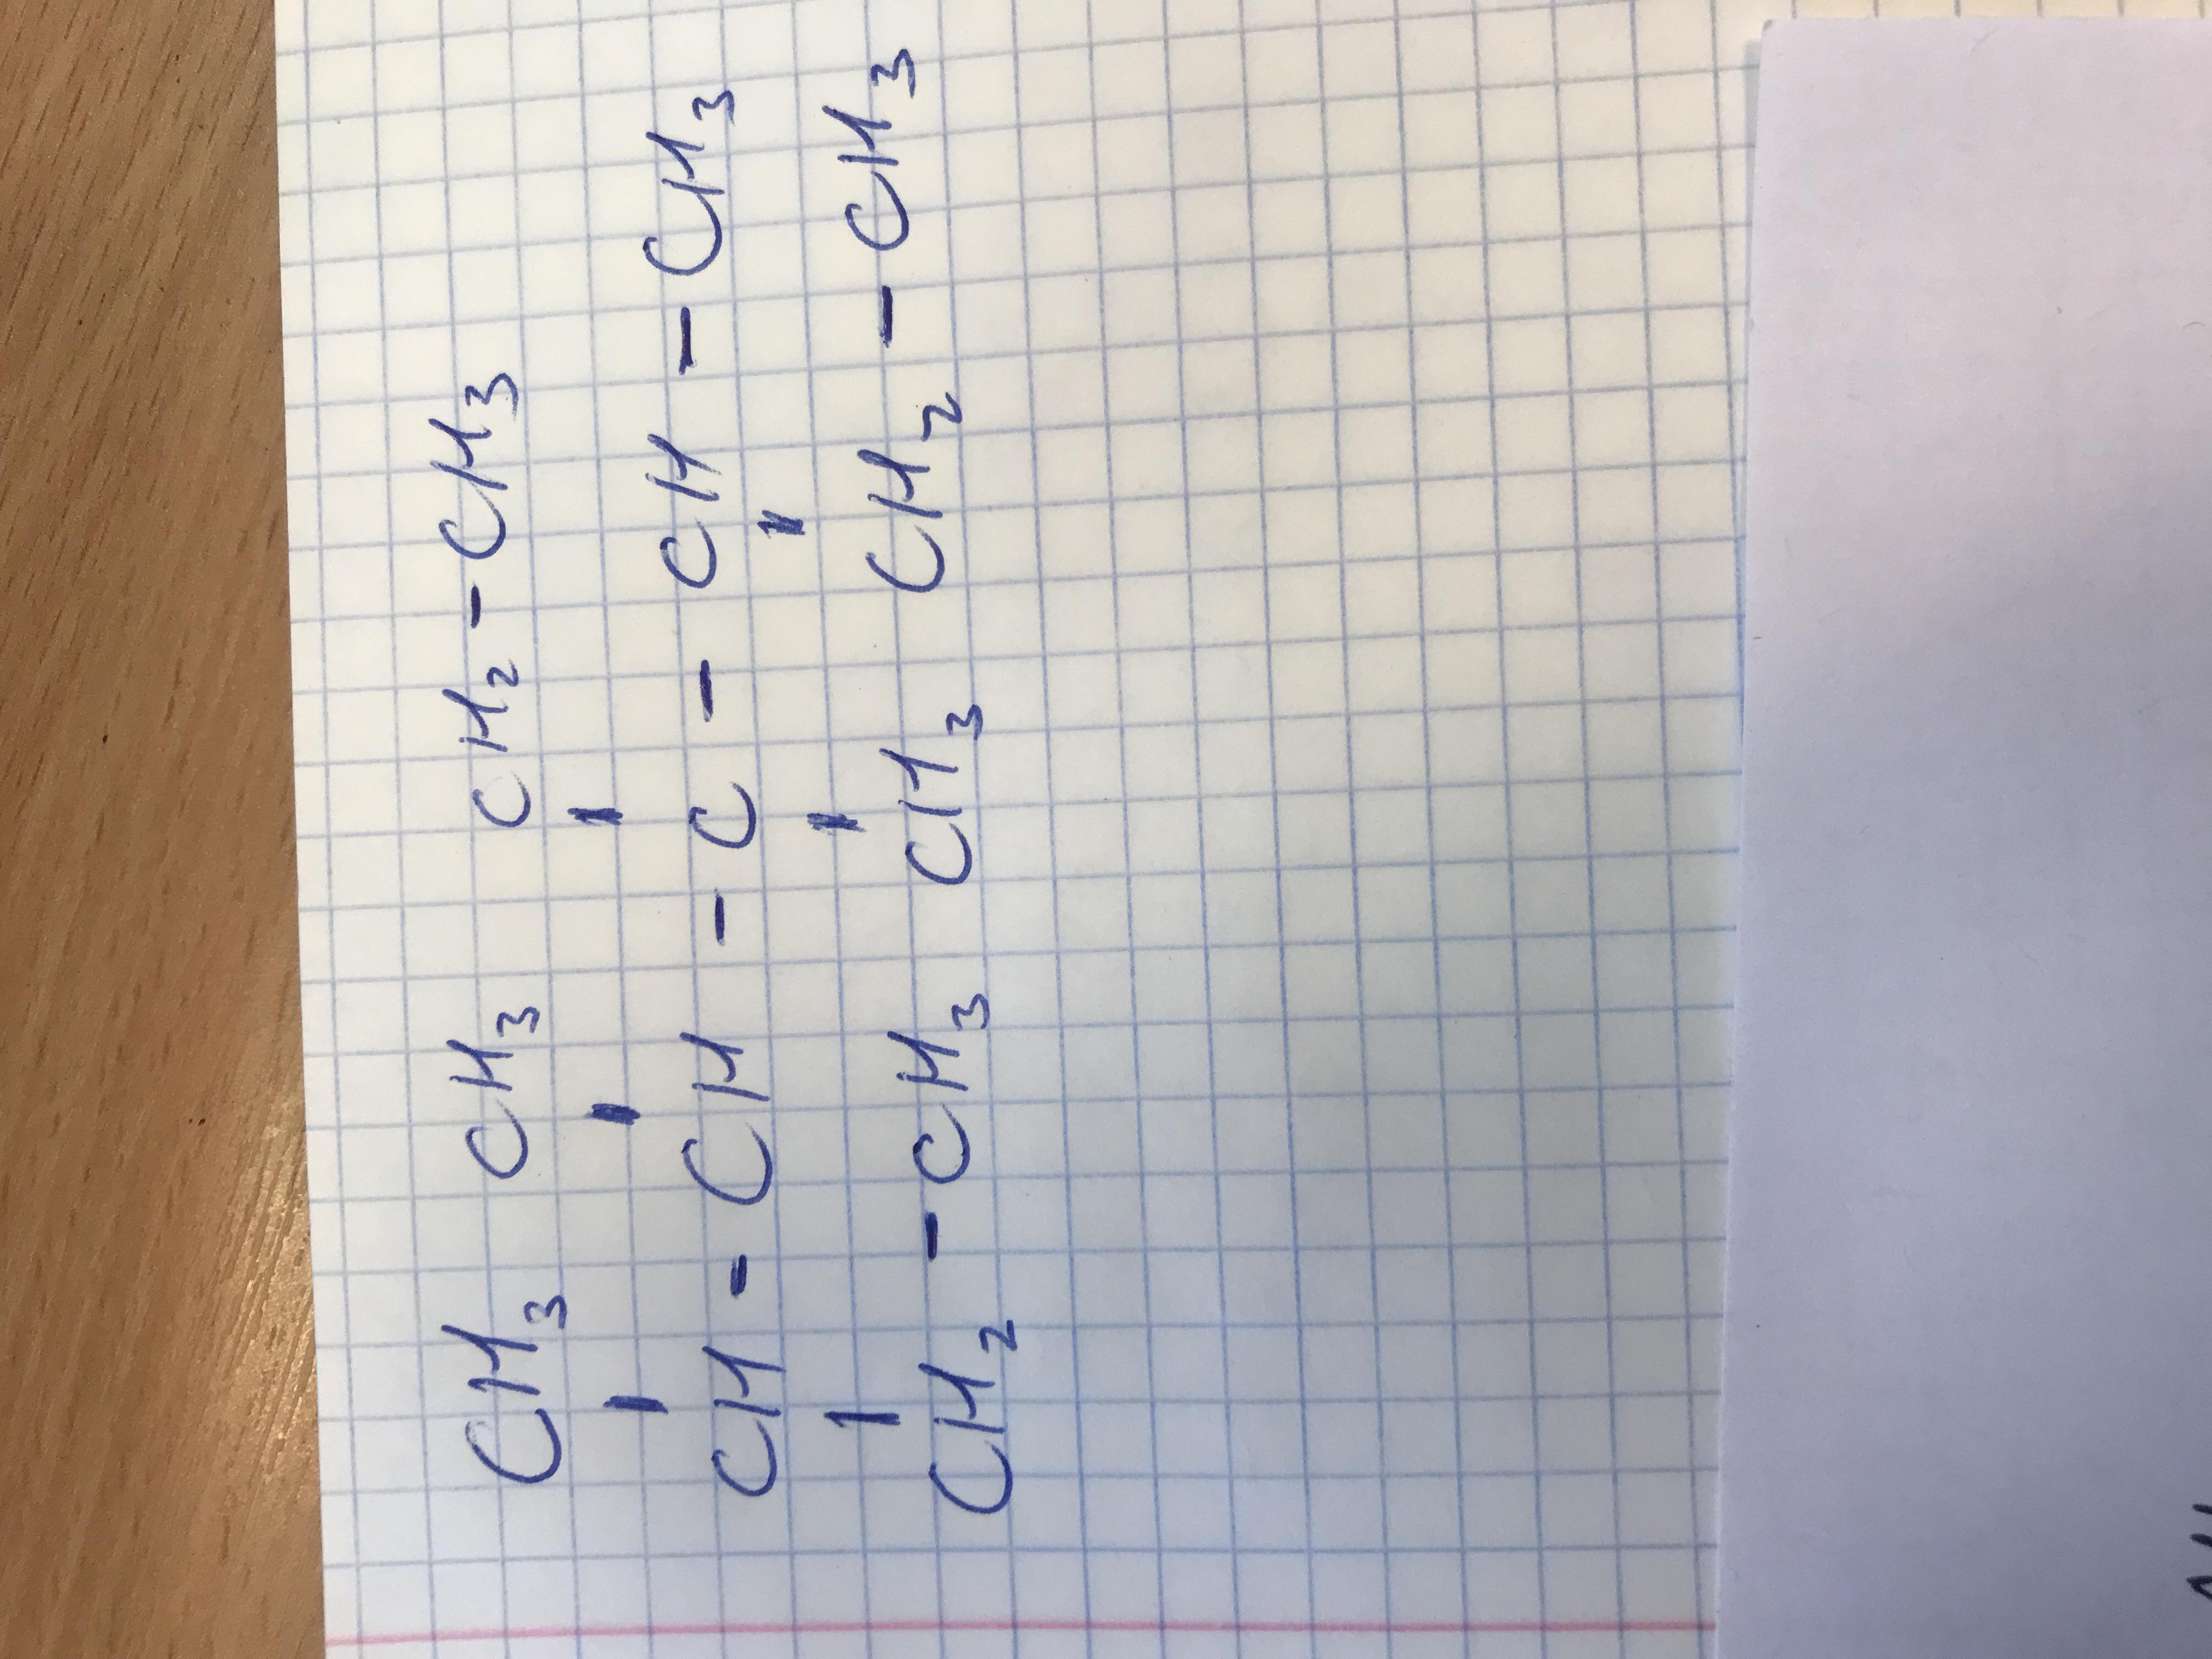 CH3 CH3 CH2-CH3
CH-CH-C-CH-CH3
CH2-CH3 CH3 CH2-CH3